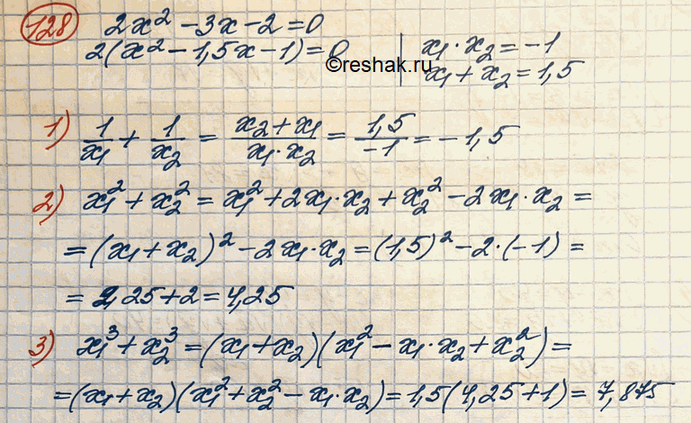 128
2x² - 3x - 2 = 0
2(x² - 1,5x - 1) = 0
x₁ · x₂ = -1
x₁ + x₂ = 1,5
©reshak.ru
1) 1/x₁ + 1/x₂ = (x₂ + x₁)/(x₁ · x₂) = 1,5/-1 = -1,5
2) x₁² + x₂² = x₁² + 2x₁ · x₂ + x₂² - 2x₁ · x₂ =
= (x₁ + x₂)² - 2x₁ · x₂ = (1,5)² - 2 · (-1) =
= 2,25 + 2 = 4,25
3) x₁³ + x₂³ = (x₁ + x₂)(x₁² - x₁ · x₂ + x₂²) =
= (x₁ + x₂)(x₁² + x₂² - x₁ · x₂) = 1,5(4,25 + 1) = 7,875